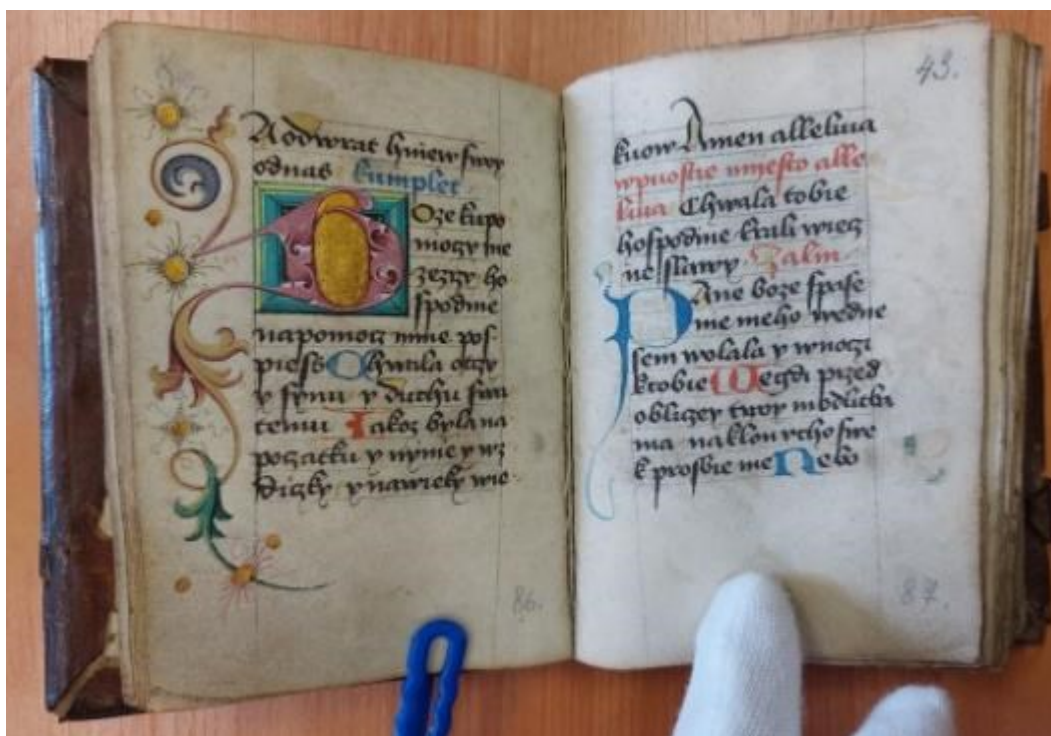 A odwrat hniew swoy
odnas kumplet
Boze kupo
moczy me
zezrzy ho
spodine
napomocz mnie pos-
piess Chwala otczy
y synu y duchu swa
temu Iakoz byla na
poczatku y nynie y wz
diczky y nawieky wie
86.
43.
kuow Amen alleluia
wpuostie miesto alle
luia Chwala tobie
hospodine krali wiecz
ne slawy Zalm
PAne boze spase
nie meho wedne
sem wolala y wnoczi
ktobie Wegdi przed
obliczey twoy modlitba
ma naklon vcho swe
k prosbie me Nebo
87.